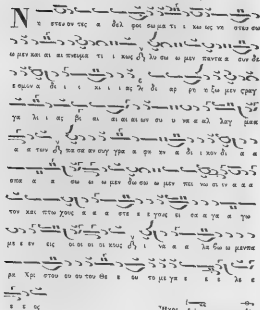 Ν η στε ευ ον τες α δελ φοι σω μα τι ι κω ως νη στευ σω
ω μεν και αι αι πνευμα τι ι κως λυ σω ω μεν παντα α συν δε
ε σμον α δι ι κι ι ι ας δι αρ ρη η ξω μεν στραγ
γα λι ι ας βι αι αι αι αι ων συ υ να αλ λαγ μαα
α α των πα σα αν συγ γρα α φη ην α δι ι κον δι α α
σπα α α σω ω ω μεν δω σω ω μεν πει νω σι ιν α α α
τον και πτω χους α α α στε ε ε γους ει σα α γα α γω
με ε εν εις οι οι οι οι κους ι να α α λα βω ω μεν πα
ρα Χρι στου ου ου του Θε ε ου το με γα ε ε λε ε
ε ε ος